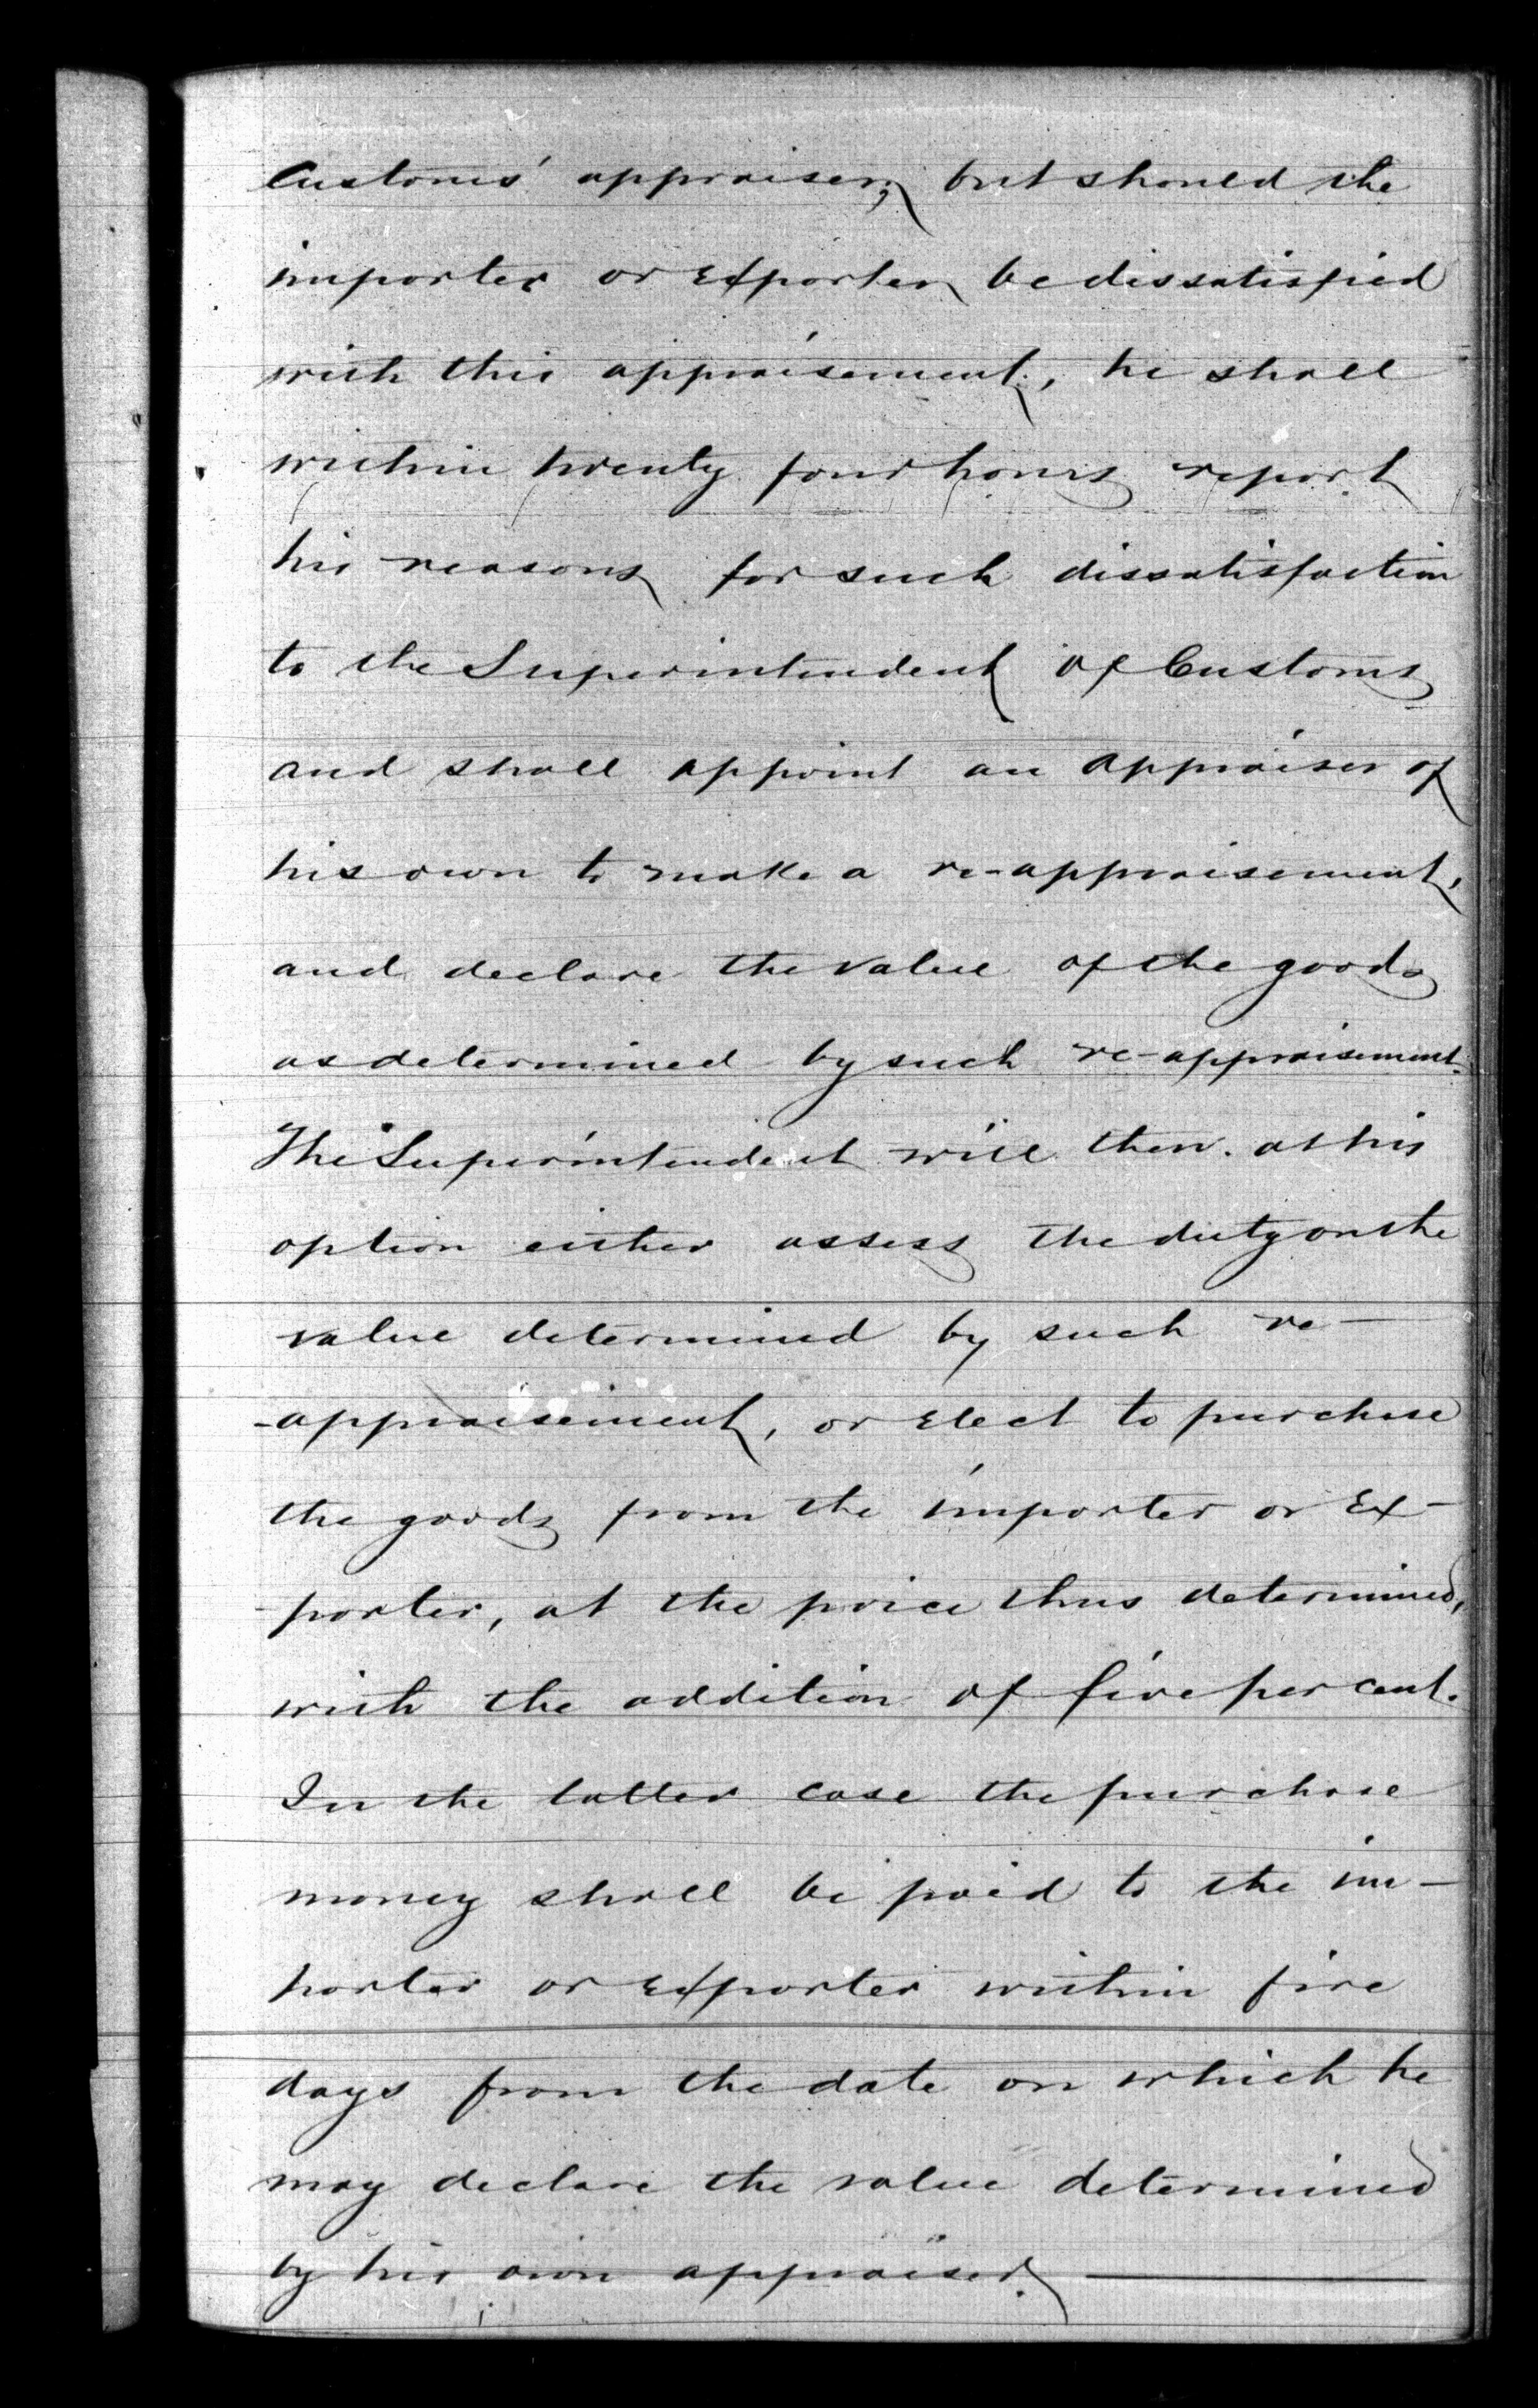 Customs' appraiser; but should the
importer or Exporter be dissatisfied
with this appraisement, he shall
within twenty four hours report
his reasons for such dissatisfaction
to the Superintendent of Customs
and shall appoint an appraiser of
his own to make a re-appraisement,
and declare the value of the goods
as determined by such re-appraisement.
The Superintendent will then. at his
option either assess the duty on the
value determined by such re-
-appraisement, or Elect to purchase
the goods from the importer or Ex-
-porter, at the price thus determined,
with the addition of five per cent.
In the latter case the purchase
money shall be paid to the im-
porter or Exporter within five
days from the date on which he
may declare the value determined
by his own appraiser.